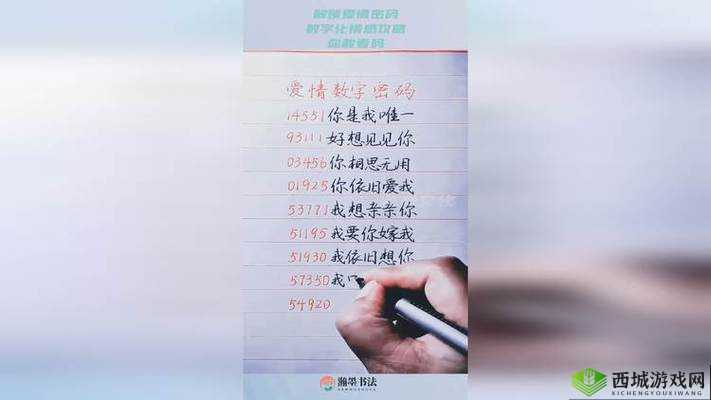 解锁爱情密码
数字化情感攻略
你敢看吗
爱情数字密码
14551你是我唯一
93111好想见见你
03456你相思无用
01925你依旧爱我
53771我想亲亲你
51195我要你嫁我
51930我依旧想你
57350我只
54920
瀚墨书法
西城游戏网
XICHENGYOUXIWANG